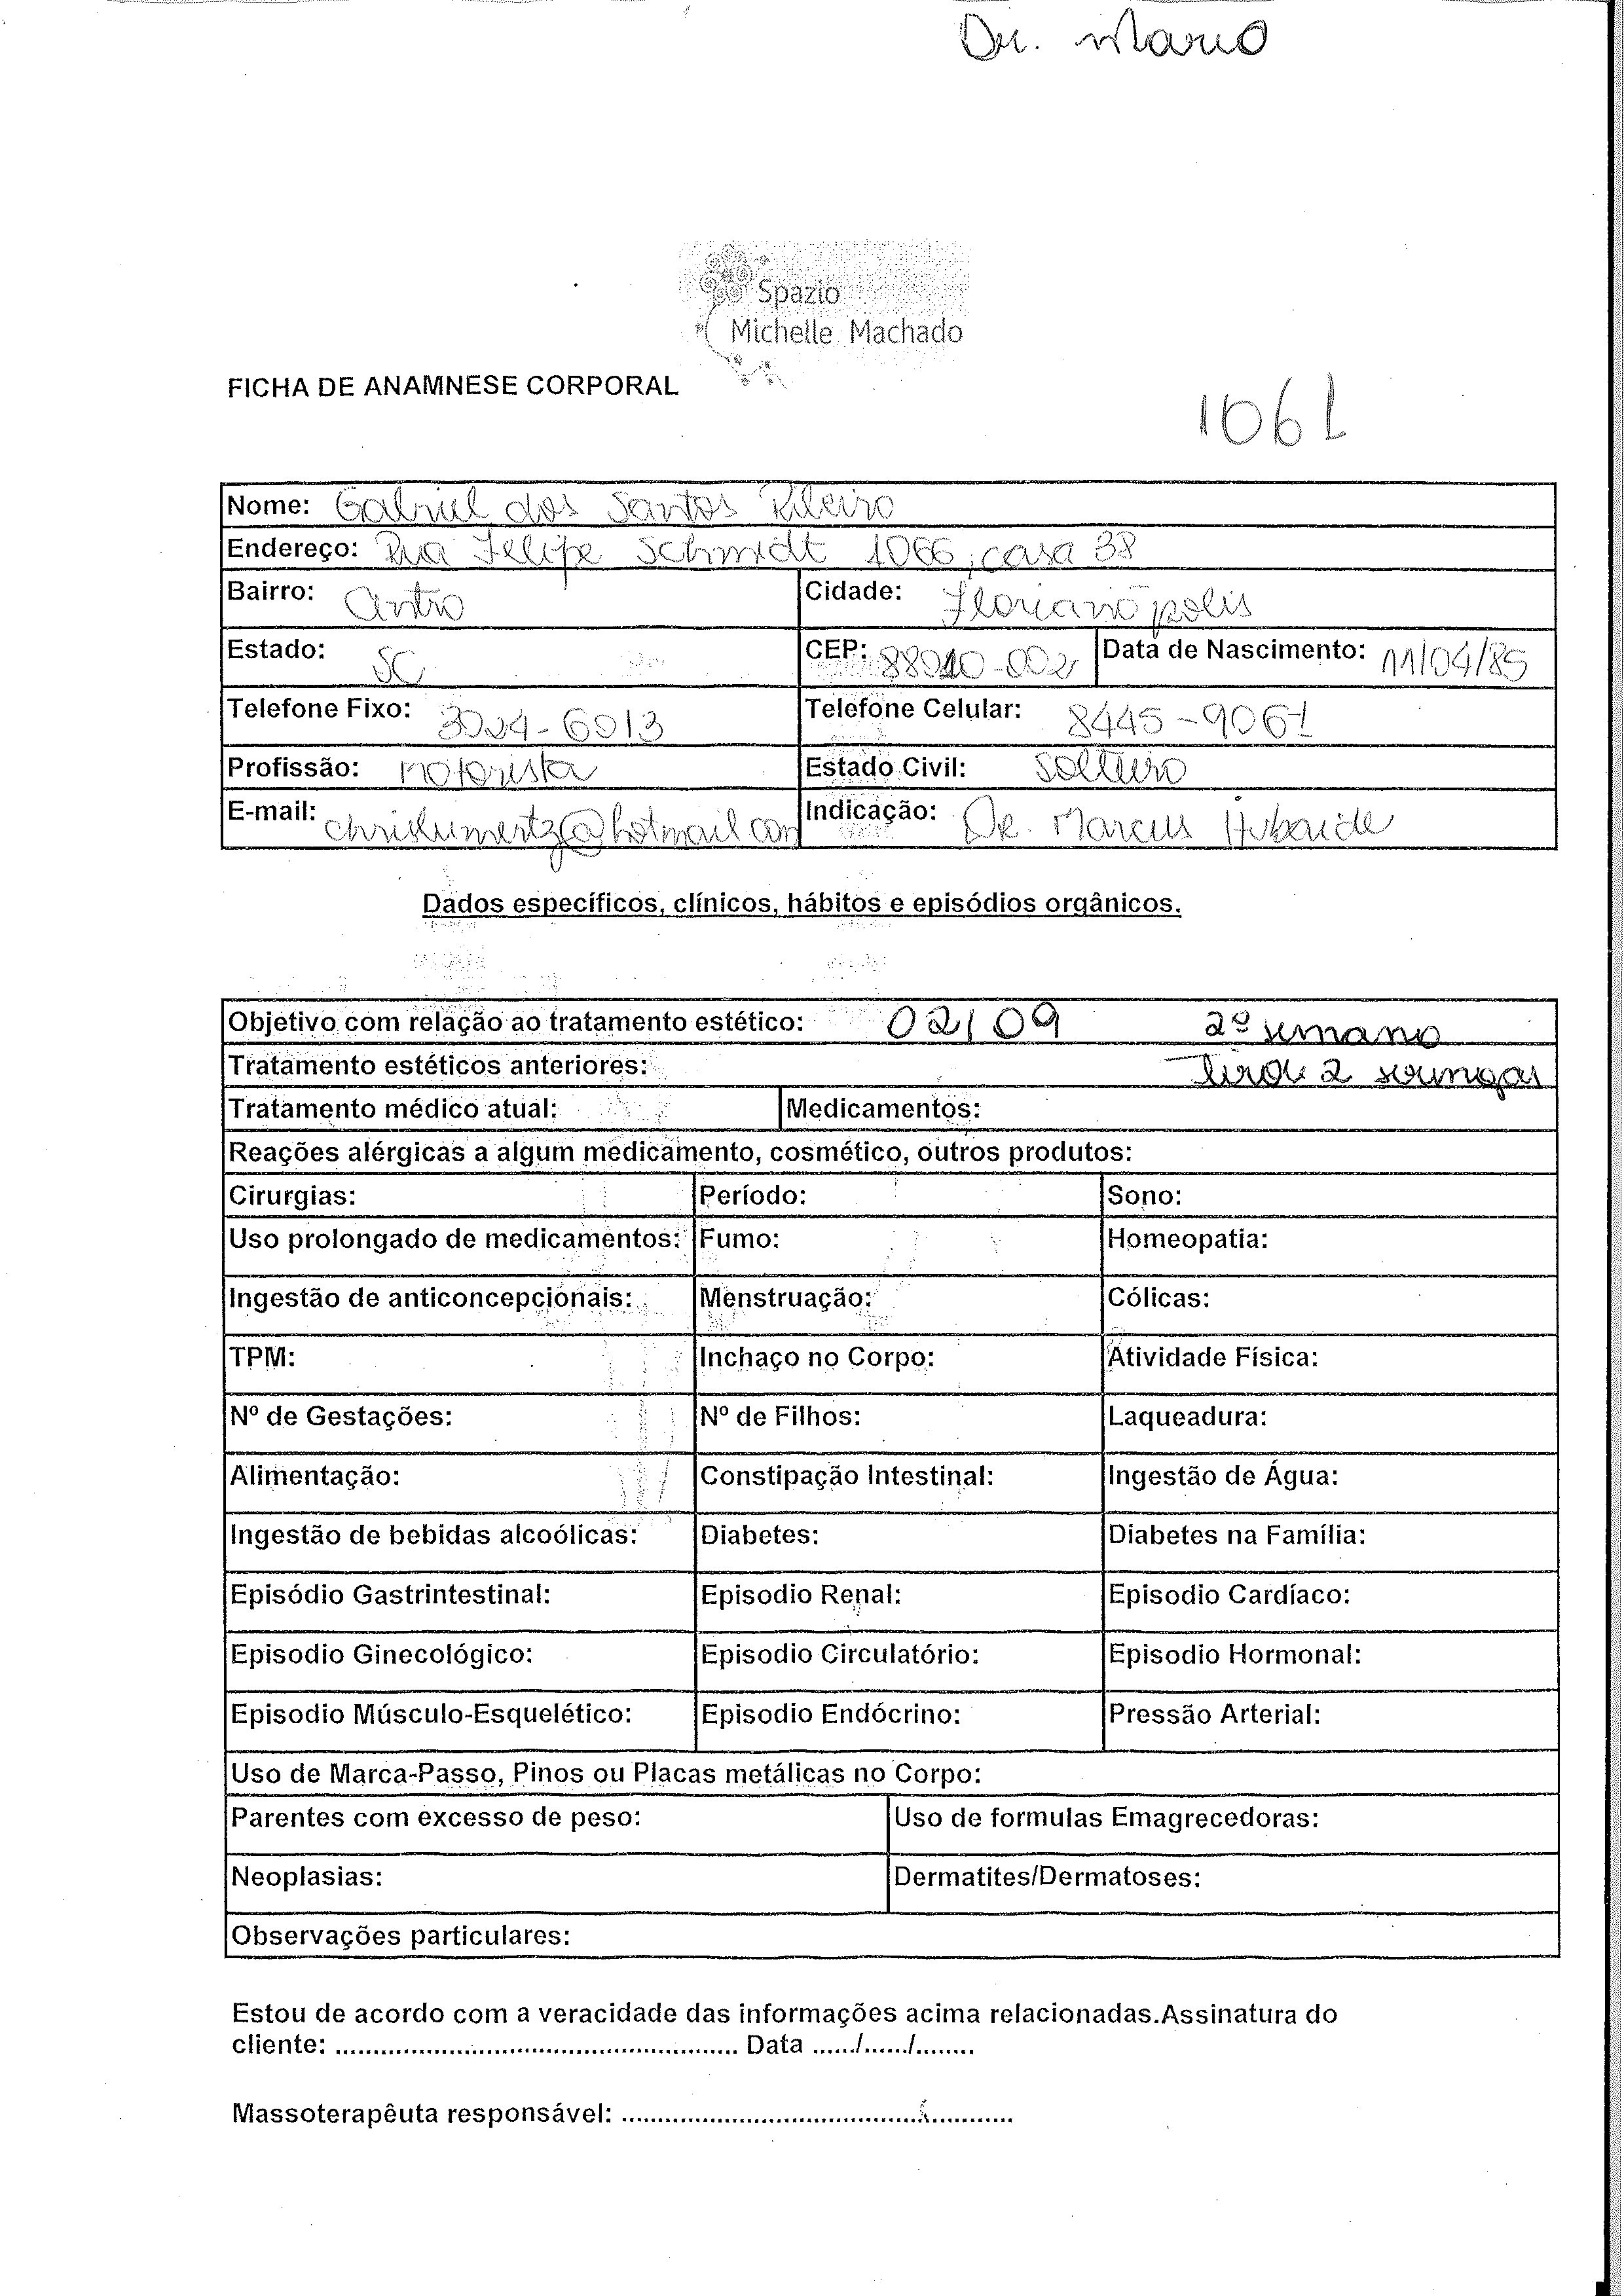 Dr. Mario
Spazio
Michelle Machado
FICHA DE ANAMNESE CORPORAL
1061
Nome: Gabriel dos Santos Ribeiro
Endereço: Rua Felipe Schmidt 1066, casa 38
Bairro: Centro Cidade: Florianópolis
Estado: SC CEP: 88010-002 Data de Nascimento: 11/04/85
Telefone Fixo: 3024-6013 Telefone Celular: 8445-9061
Profissão: motorista Estado Civil: Solteiro
E-mail: Indicação: Dr. Marcus
Dados específicos, clínicos, hábitos e episódios orgânicos.
Objetivo com relação ao tratamento estético: 02/09 2º semana
Tratamento estéticos anteriores: Tirou 2 seringas
Tratamento médico atual: Medicamentos:
Reações alérgicas a algum medicamento, cosmético, outros produtos:
Cirurgias: Período: Sono:
Uso prolongado de medicamentos: Fumo: Homeopatia:
Ingestão de anticoncepcionais: Menstruação: Cólicas:
TPM: Inchaço no Corpo: Atividade Física:
Nº de Gestações: Nº de Filhos: Laqueadura:
Alimentação: Constipação Intestinal: Ingestão de Água:
Ingestão de bebidas alcoólicas: Diabetes: Diabetes na Família:
Episódio Gastrintestinal: Episodio Renal: Episodio Cardíaco:
Episodio Ginecológico: Episodio Circulatório: Episodio Hormonal:
Episodio Músculo-Esquelético: Episodio Endócrino: Pressão Arterial:
Uso de Marca-Passo, Pinos ou Placas metálicas no Corpo:
Parentes com excesso de peso: Uso de formulas Emagrecedoras:
Neoplasias: Dermatites/Dermatoses:
Observações particulares:
Estou de acordo com a veracidade das informações acima relacionadas.Assinatura do
cliente: ..................................................... Data ....../....../........
Massoterapêuta responsável: ....................................................